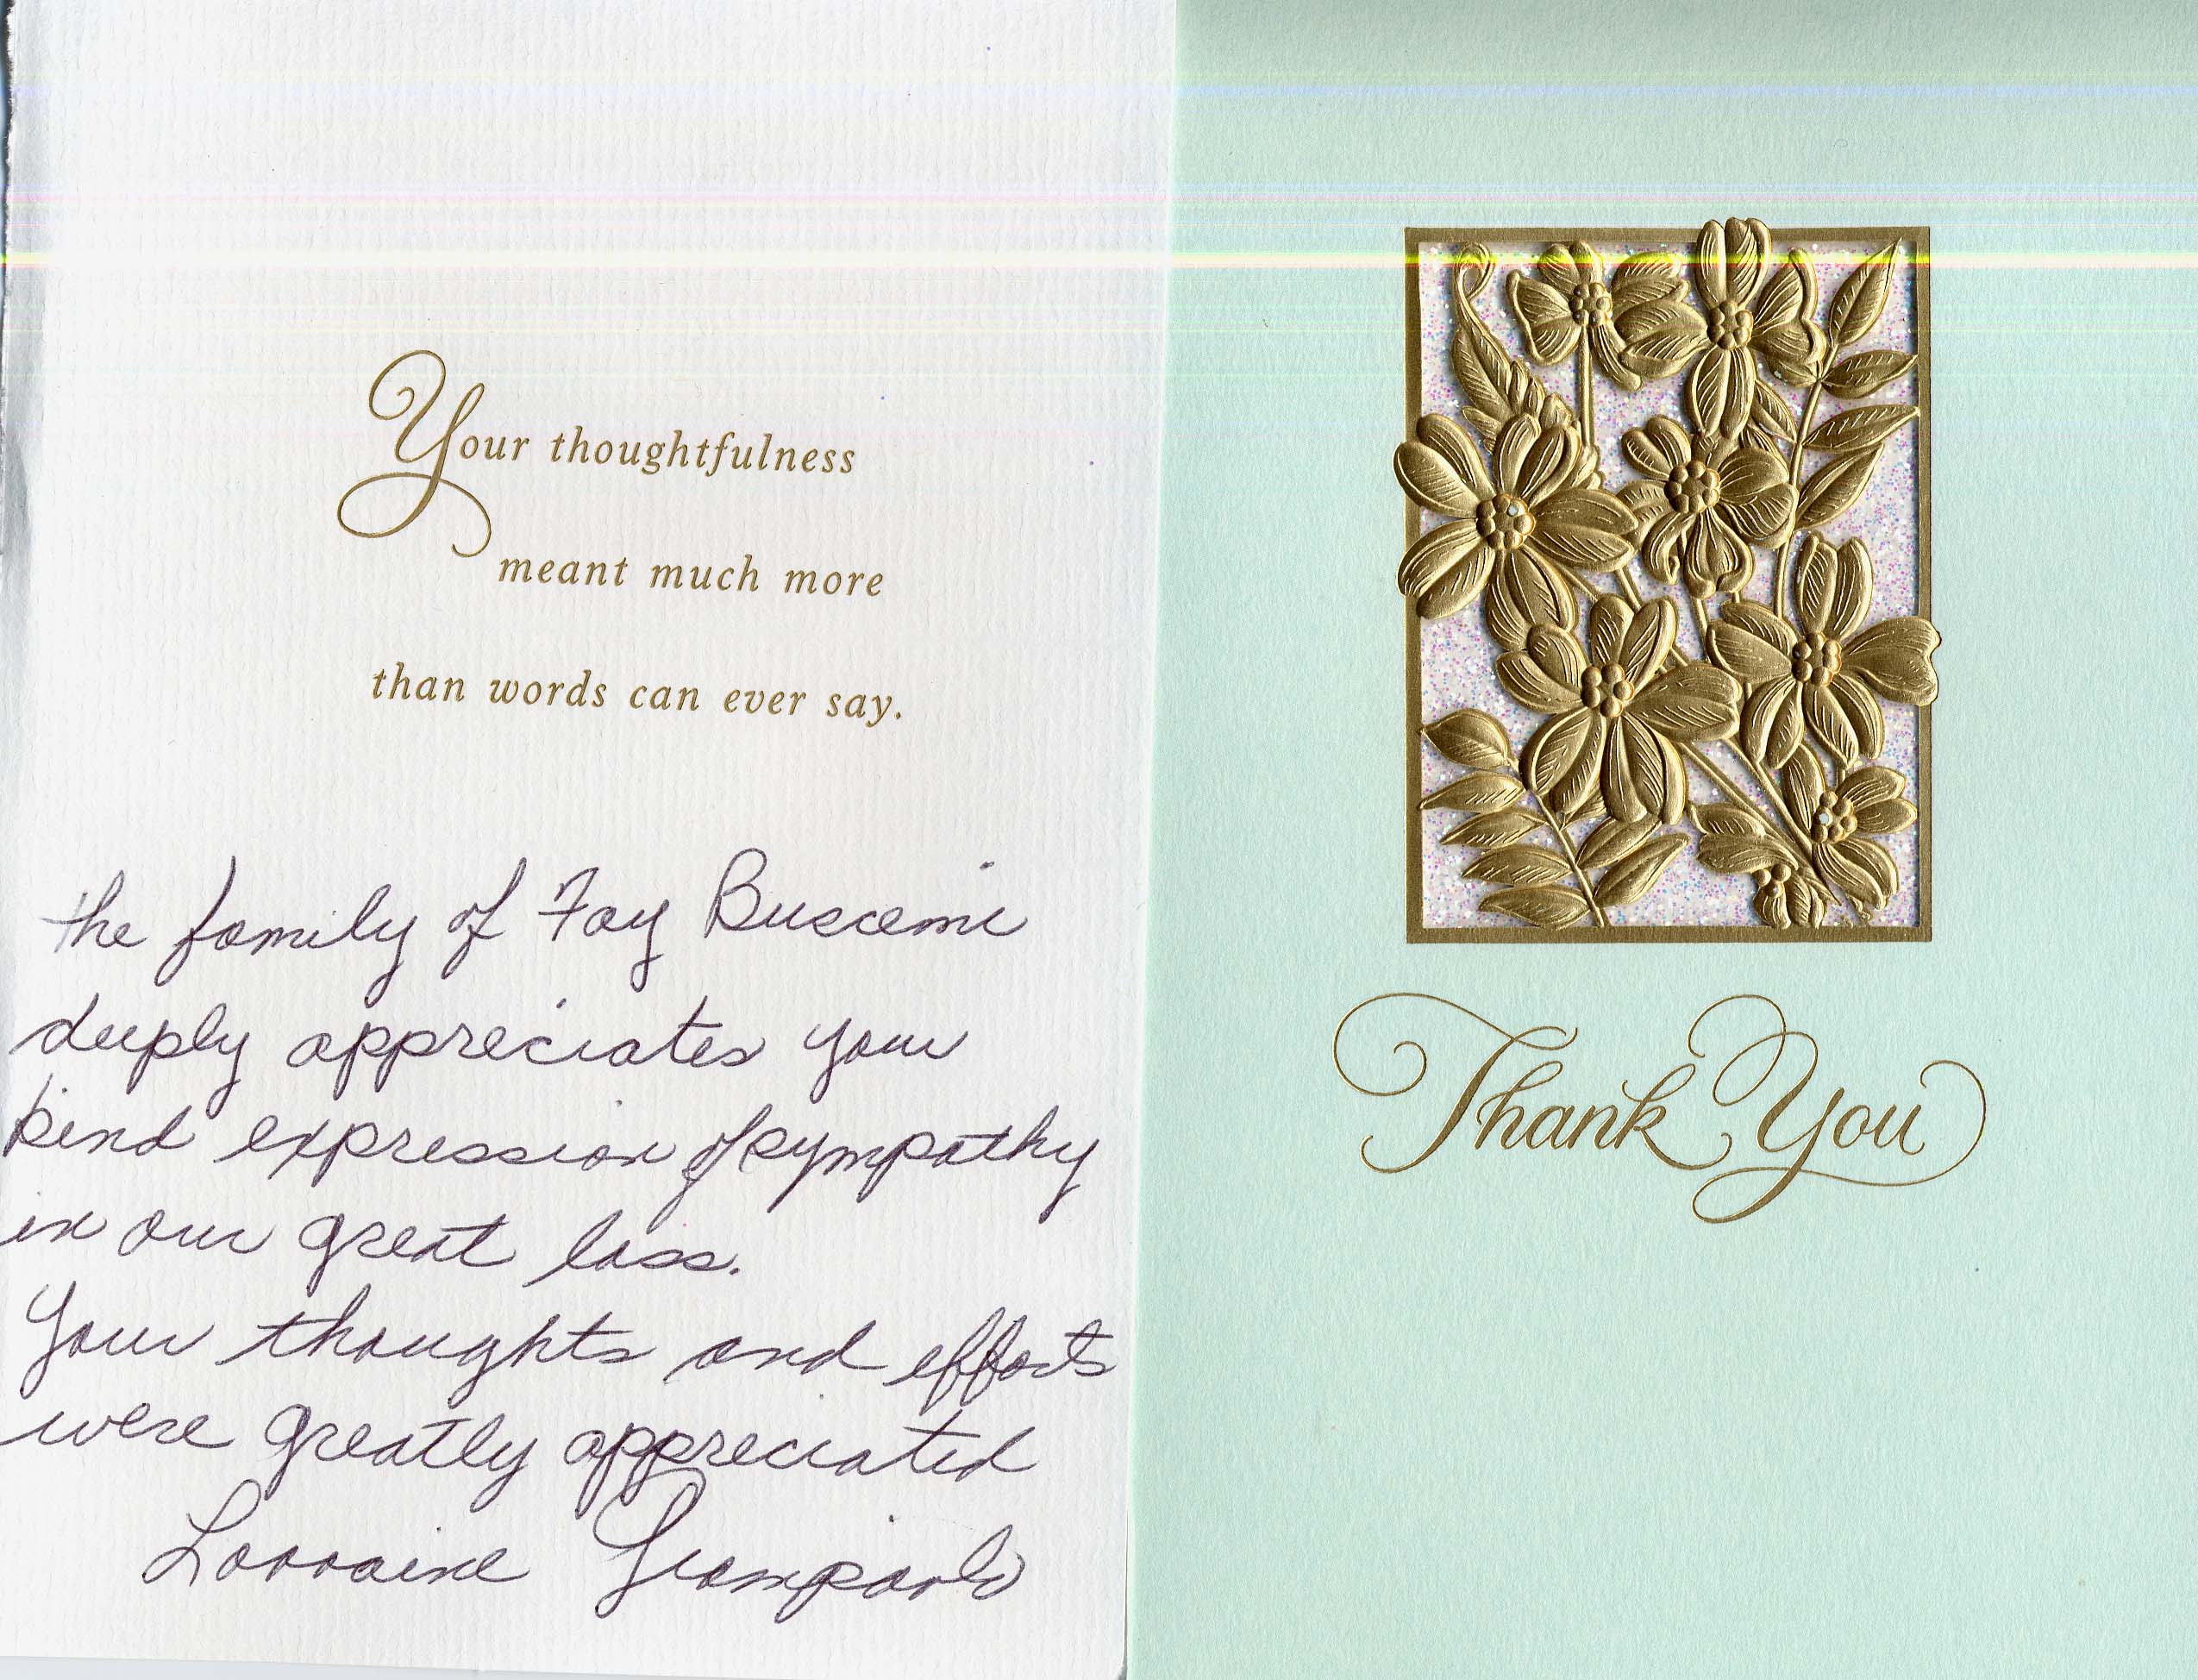 Your thoughtfulness
meant much more
than words can ever say.
the family of Fay Buscemi
deeply appreciates your
kind expression of sympathy
in our great loss.
Your thoughts and efforts
were greatly appreciated
Lorraine
Thank You